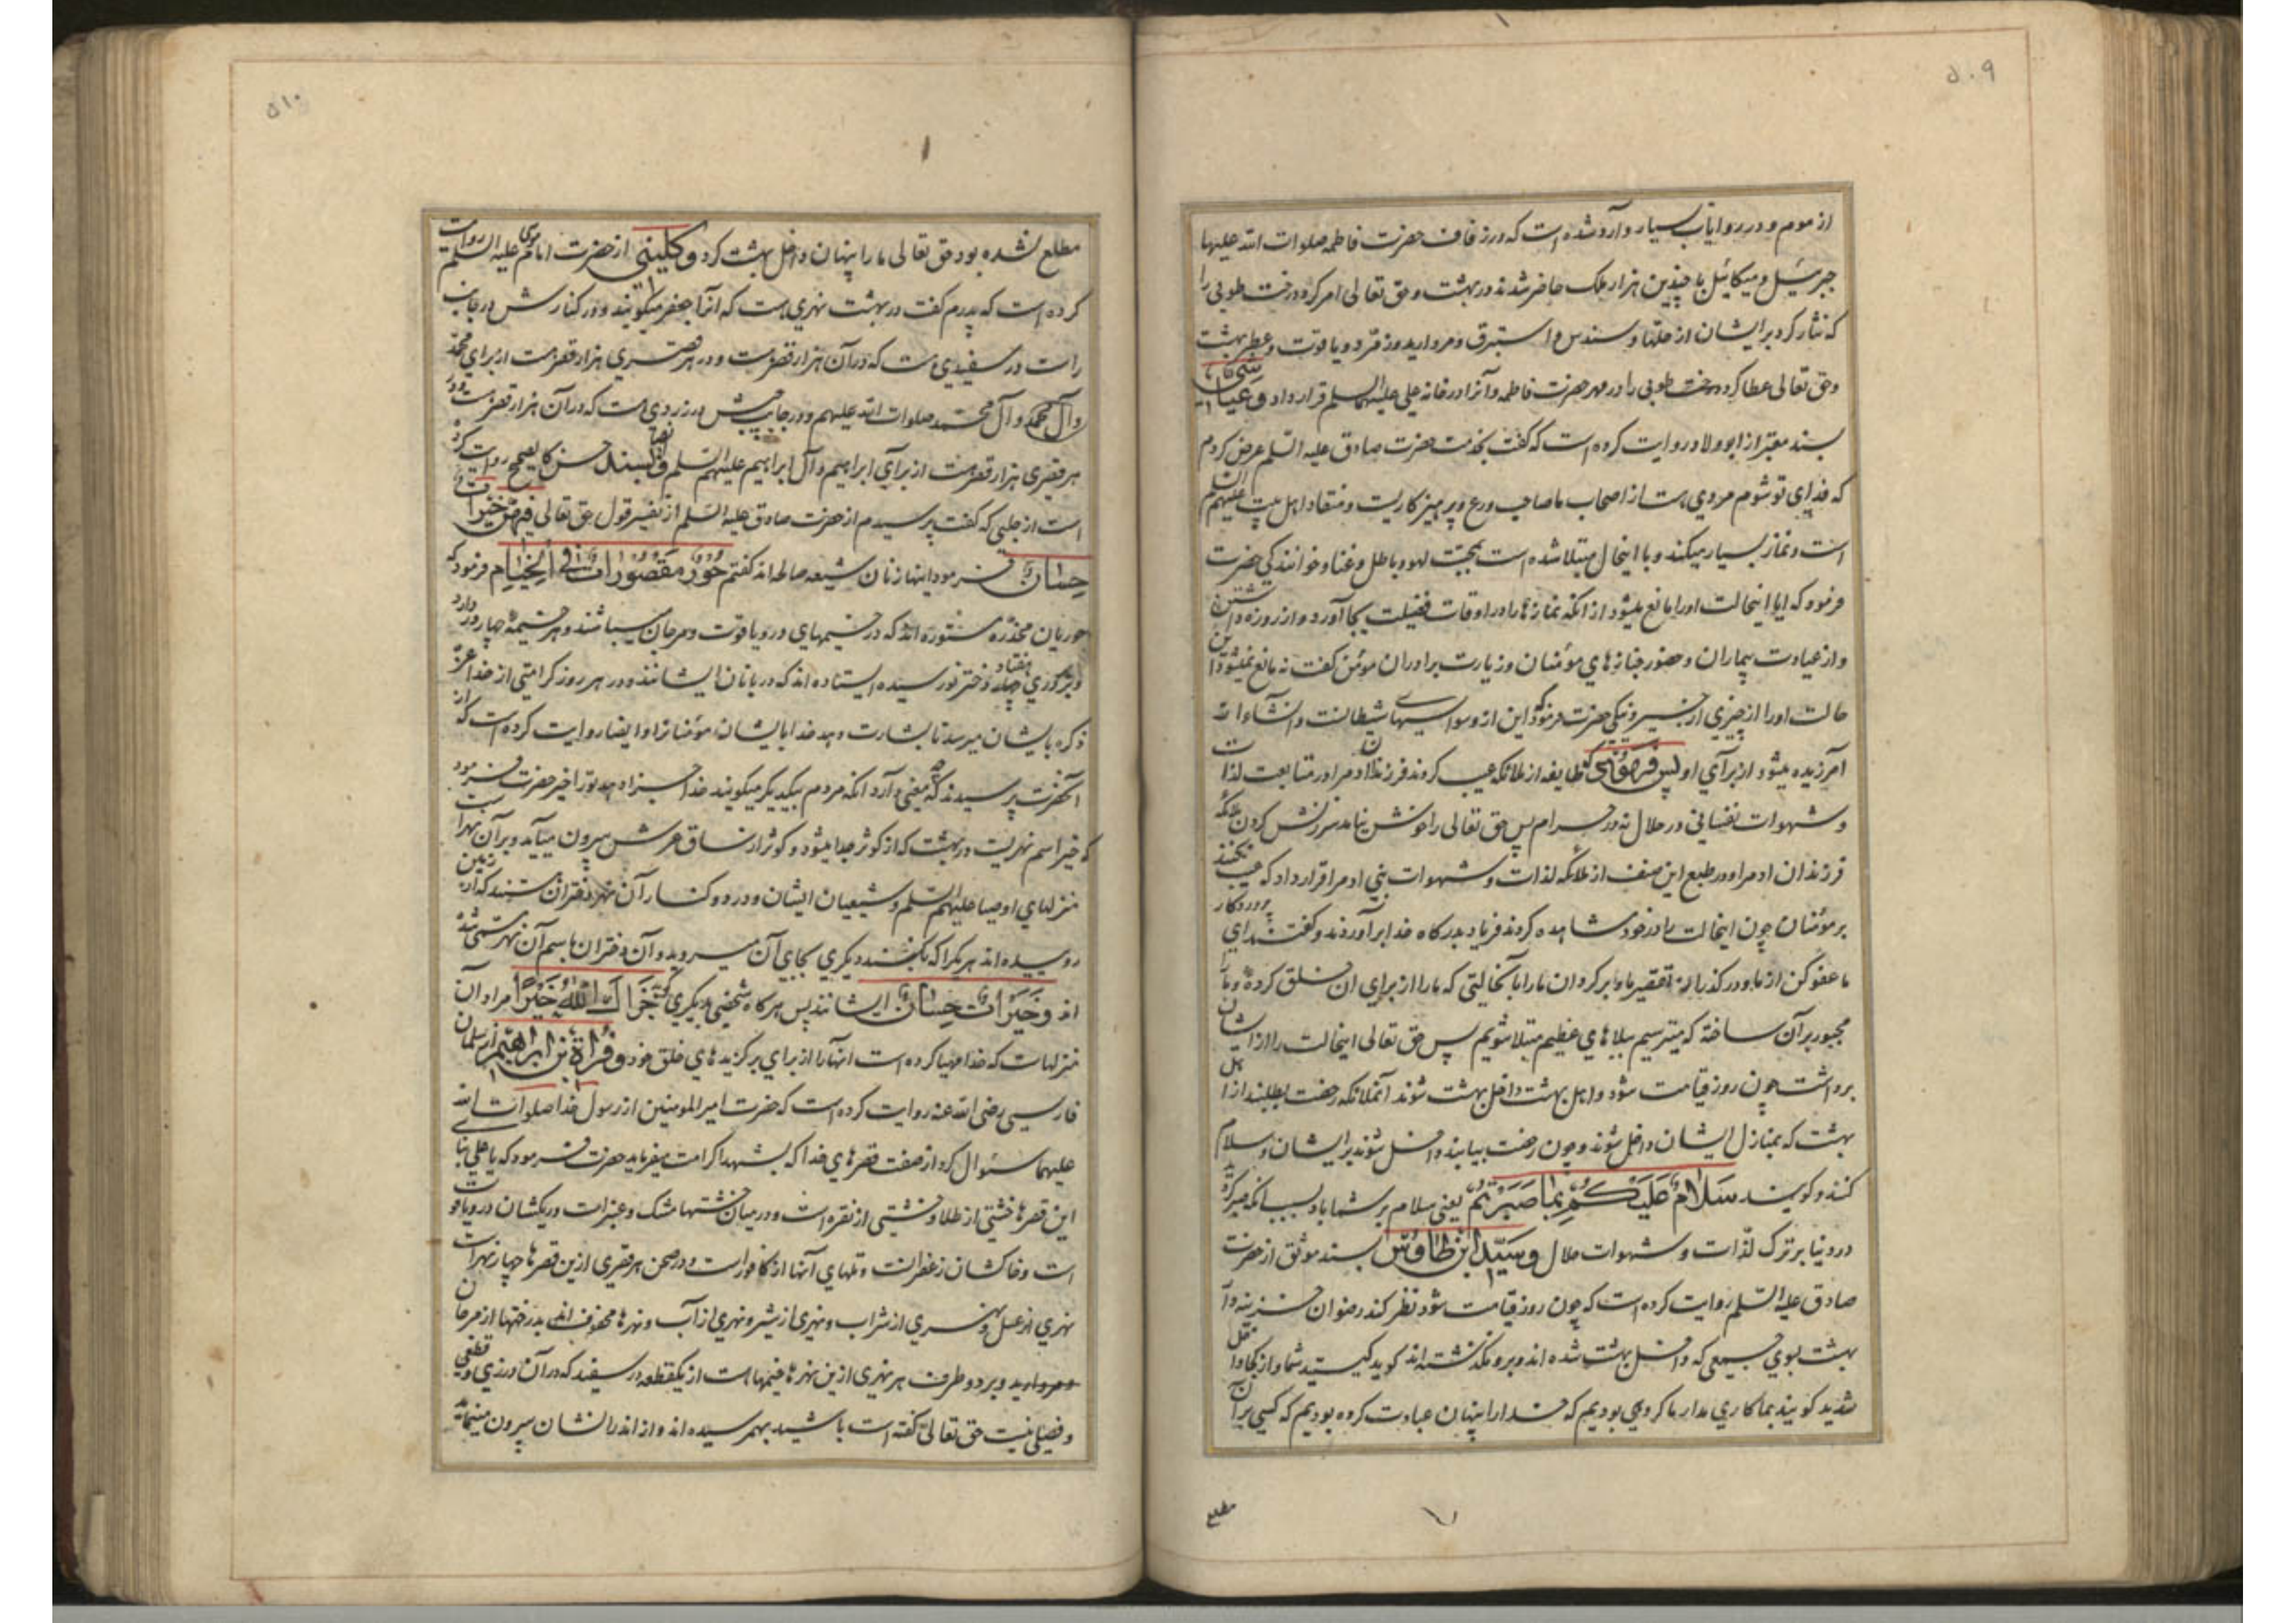 ۵۰۹
از موم و در روایات بسیار وارد شده است که در زفاف حضرت فاطمه صلوات الله علیها
جبرئیل و میکائیل با چندین هزار ملک حاضر شدند در بهشت و حق تعالی امر کرد درخت طوبی را
که نثار کرد بر ایشان از حلها و سندس و استبرق و مروارید و زمرد و یاقوت و عطر بهشت
و حق تعالی عطا کرد درخت طوبی را در مهر حضرت فاطمه و آنرا در خانه علی علیهما السلم قرار داد و عیاشی
بسند معتبر از ابوولاد روایت کرده است که گفت بخدمت حضرت صادق علیه السلم عرض کردم
که فدای تو شوم مردی هست از اصحاب ما صاحب ورع و پرهیزکاریست و منقاد اهل بیت علیهم السلم
است و نماز بسیار میکند و با اینحال مبتلا شده است بمحبت لهو و باطل و غنا و خوانندکی حضرت
فرمود که ایا اینحالت او را مانع میشود از انکه نمازها را در اوقات فضیلت بجا آورد و از روزه داشتن
و از عیادت بیماران و حضور جنازهای مؤمنان و زیارت برادران مومن کفت نه مانع نمیشود این
حالت او را از چیزی از خیر و نیکی حضرت فرمود این از وسواسیهای شیطانست و انشاء الله
آمرزیده میشود از برای او پس فرمود که طایفه از ملائکه عیب کردند فرزندان ادم را در متابعت لذات
و شهوات نفسانی در حلال نه در حرام پس حق تعالی را خوش نیامد سرزنش کردن ملائکه
فرزندان ادم را و در طبع این صنف از ملائکه لذات و شهوات بنی ادم را قرار داد که عیب نکنند
بر مؤمنان چون اینحالت را در خود مشاهده کردند فریاد بدرکاه خدا برآوردند و کفتند ای پروردکار
ما عفو کن از ما و درکذر از تقصیر ما و برکردان ما را بآنحالتی که ما را از برای ان خلق کرده و ما را
مجبور بر آن ساخته که میترسیم ببلاهای عظیم مبتلا شویم پس حق تعالی اینحالت را از ایشان
برداشت چون روز قیامت شود و اهل بهشت داخل بهشت شوند آنملائکه رخصت بطلبند از اهل
بهشت که بمنازل ایشان داخل شوند و چون رخصت بیابند داخل شوند بر ایشان و سلام
کنند و کویند سَلَامٌ عَلَیْکُمْ بِمَا صَبَرْتُمْ یعنی سلام بر شما باد بسبب انکه صبر کردید
در دنیا بر ترک لذات و شهوات حلال و سیّد ابن طاوس بسند موثق از حضرت
صادق علیه السلم روایت کرده است که چون روز قیامت شود نظر کند رضوان خزینه دار
بهشت بسوی جمعی که داخل بهشت شده اند و برو نکذشته اند کوید کیستید شما و از کجا داخل
شدید کویند بما کاری مدار ما کروهی بودیم که خدا را پنهان عبادت کرده بودیم که کسی بر آن
مطلع
۵۱۰
مطلع نشده بود حق تعالی ما را پنهان داخل بهشت کرد و کلینی از حضرت امام موسی علیه السلم روایت
کرده است که پدرم کفت در بهشت نهری هست که انرا جعفر میکویند و در کنارش در جانب
راست در سفیدی هست که در آن هزار قصرست و در هر قصری هزار قصرست از برای محمد
و آل محمد صلوات الله علیهم و در جانب چپش در زردی هست که در آن هزار قصرست و در
هر قصری هزار قصرست از برای ابراهیم و آل ابراهیم علیهم السلم و ایضا بسند حسن کالصحیح روایت کرده
است از حلبی که کفت پرسیدم از حضرت صادق علیه السلم از تفسیر قول حق تعالی فیهن خیرات
حِسَانٌ فرمود اینها زنان شیعه صالحه اند کفتم حُورٌ مَقْصُورَاتٌ فِی الْخِیَامِ فرمود که
حوریان مخدره مستوره اند که در خیمهای در و یاقوت و مرجان میباشند و هر خیمه چهار در دارد
و بر هر دری هفتاد دختر نورسیده ایستاده اند که دربانان ایشانند و در هر روز کرامتی از خدا عز
ذکره بایشان میرسد تا بشارت دهد خدا بایشان مؤمنانرا و ایضا روایت کرده است که از
آنحضرت پرسیدند که چه معنی دارد آنکه مردم بیکدیکر میکویند خدا جزا دهد تو را خیر حضرت فرمود
که خیر اسم نهریست در بهشت که از کوثر جدا میشود و کوثر از ساق عرش بیرون میآید و بر آن نهر است
منزلهای اوصیا علیهم السلم و شیعیان ایشان و در دو کنار آن نهر دختران هستند که از زمین
روییده اند هر یکرا که بکنند دیکری بجای آن میروید و آن دختران باسم آن نهر مسمی شده
اند و خَیْرَاتٌ حِسَانٌ ایشانند پس هرکاه شخصی بدیکری کوید جَزَاكَ اللّٰهُ خَیْرًا مراد آن
منزلهاست که خدا مهیا کرده است انها را از برای برکزیدهای خلق خود و فُراة بن ابراهیم از سلمان
فارسی رضی الله عنه روایت کرده است که حضرت امیر المومنین از رسول خدا صلوات الله
علیهما سئوال کرد از صفت قصرهای خدا که بشهدا کرامت میفرماید حضرت فرمود که یا علی بنای
این قصرها خشتی از طلا و خشتی از نقره است و در میان خشتها مشک و عنبرست و ریکشان در و یاقوت
است و خاکشان زعفرانست و تلهای آنها از کافورست و در صحن هر قصری ازین قصرها چهار نهر است
نهری از عسل و نهری از شراب و نهری از شیر و نهری از آب و نهرها محفوف اند بدرختها از مرجان
و مروارید و بر دو طرف هر نهری ازین نهرها خیمها است از یکقطعه در سفید که در آن درزی و قطعی
و فصلی نیست حق تعالی کفته است باشید بهم رسیده اند و از اندرانشان بیرون مینماید